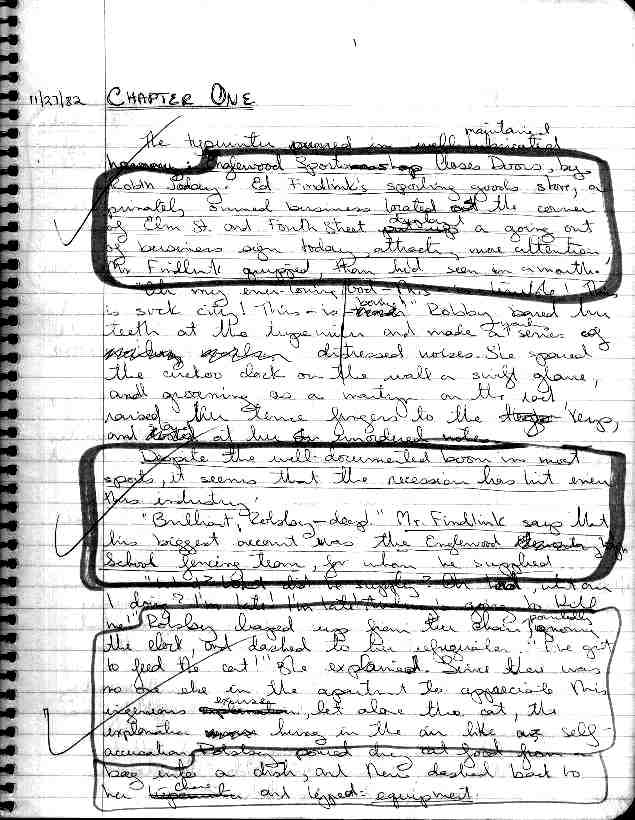 1
11/27/82 CHAPTER ONE
maintained
The typewriter purred in well lubricated
harmony: Englewood Sport shop Closes Doors, by
Robin Today. Ed Findlink's sporting goods store, a
privately owned business located at the corner
of Elm St. and Fourth Street displays a going out
of business sign today, attracting more attention,
Mr. Findlink quipped, than he'd seen in a month.
"Oh my ever-loving God - this is terrible! This
is suck city! This - is - boring!" Robby bared her
teeth at the typewriter and made a series of
distressed noises. She spared
the cuckoo clock on the wall a swift glance,
and groaning as a martyr on the rod
raised her tense fingers to the keys,
and at her notes
Despite the well-documented boom in most
sports, it seems that the recession has hit even
this industry.
"Brilliant, Robsby-deep!" Mr. Findlink says that
his biggest account was the Englewood High
School fencing team, for whom he supplied
what did he supply? Oh what am
I doing? I'm late! I'm late! going to kill
me!" lunged up from the chair, ignoring
the clock, and dashed to her "I've got
to feed the cat!" She explained. Since there was
no one else in the apartment to appreciate this
ingenious excuse, let alone the cat, the
explanation hung in the air like a self-
accusation. poured dry cat food from a
bag into a dish, and then dashed back to
her chair and typed: equipment.